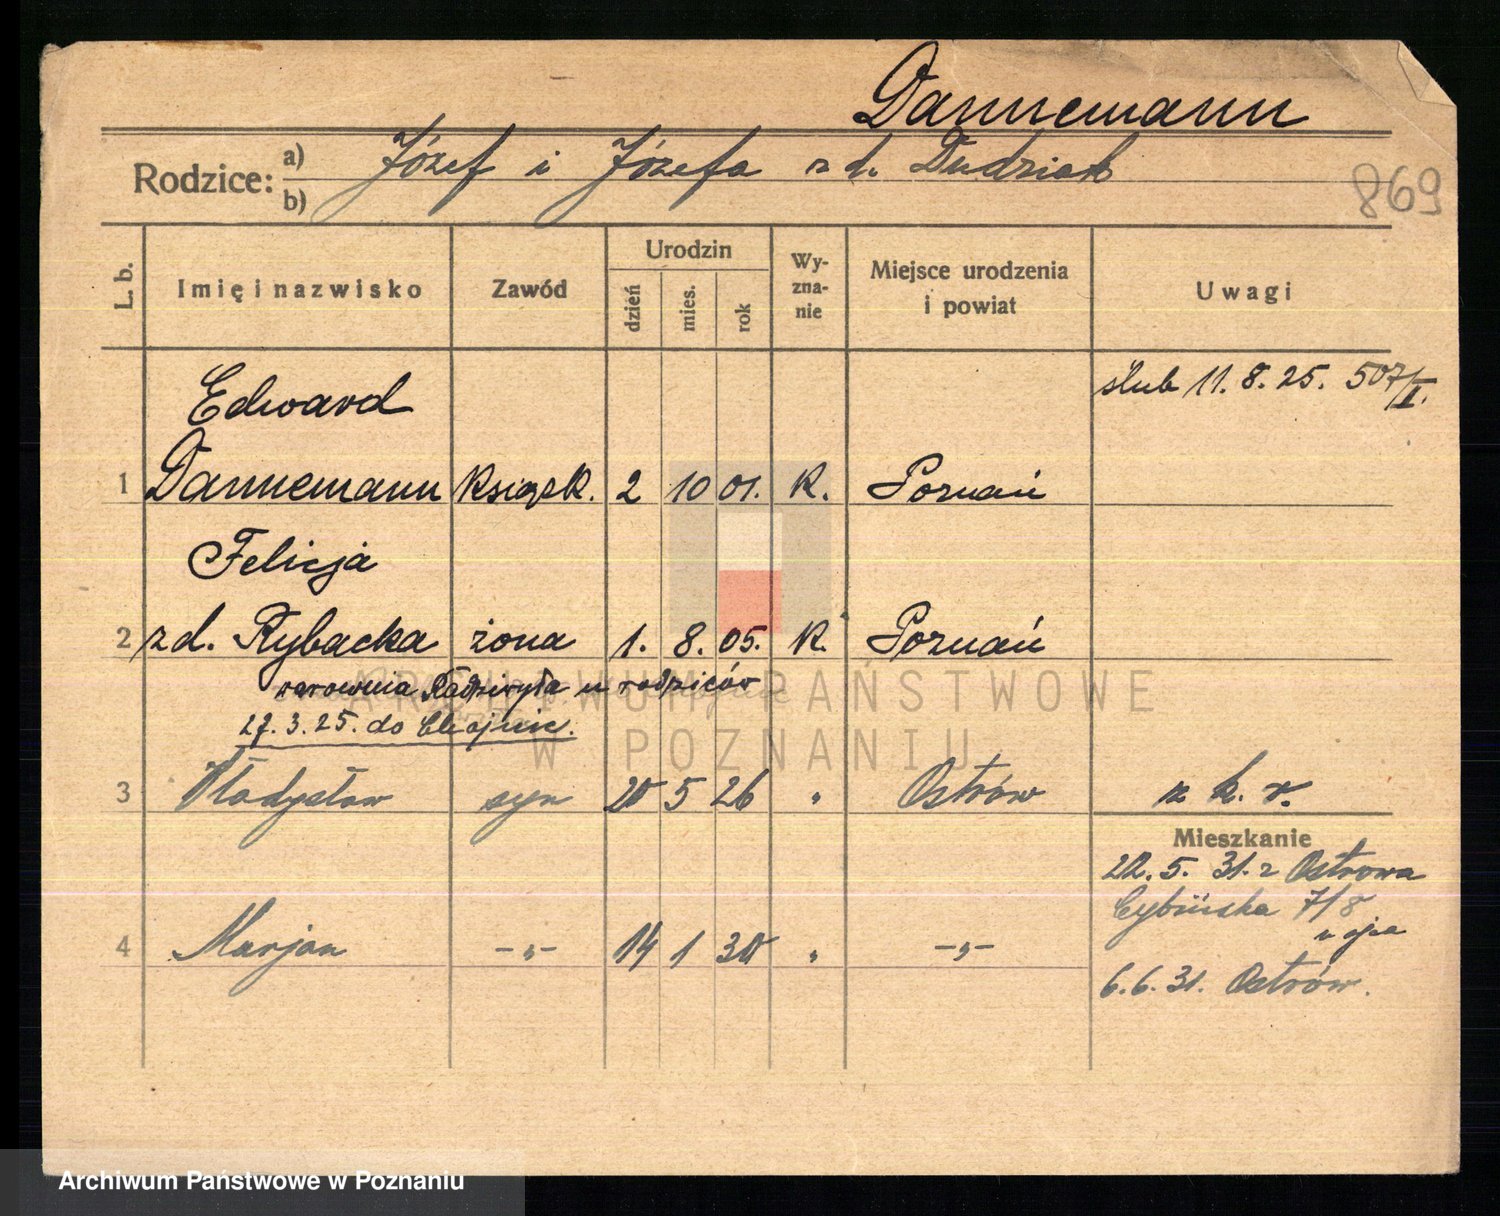 Dannemann
Rodzice: a) Józef i Józefa z d. Dudziak
b)
869
L. b. Imię i nazwisko Zawód Urodzin dzień mies. rok Wy-zna-nie Miejsce urodzenia i powiat Uwagi
Edward ślub 11. 8. 25. 507/I.
1 Dannemann Książk. 2 10 01. K. Poznań
Felicja
2 zd. Rybacka żona 1. 8. 05. K. Poznań
u rodziców
27. 3. 25. do
3 Władysław syn 20 5 26 " Ostrów z k. r.
Mieszkanie
22. 5. 31. z Ostrowa
Cybińska 7/8
u ojca
4 Marjan -„- 14 1 30 " -„-
6. 6. 31. Ostrów.
ARCHIWUM PAŃSTWOWE
W POZNANIU
Archiwum Państwowe w Poznaniu